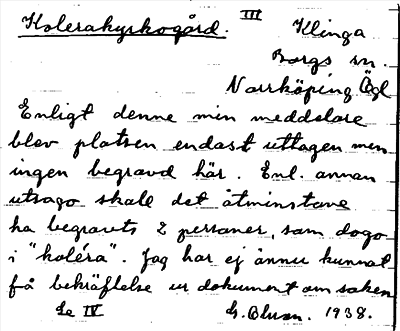 Kolerakyrkogård. III Klinga
Borgs sn.
Norrköping Ögl
Enligt denne min meddelare
blev platsen endast uttagen men
ingen begravd här. Enl. annan
utsago skall det åtminstone
ha begravts 2 personer, som dogo
i "koléra". Jag har ej ännu kunnat
få bekräftelse ur dokument om saken
Se IV G. Blusen. 1938.